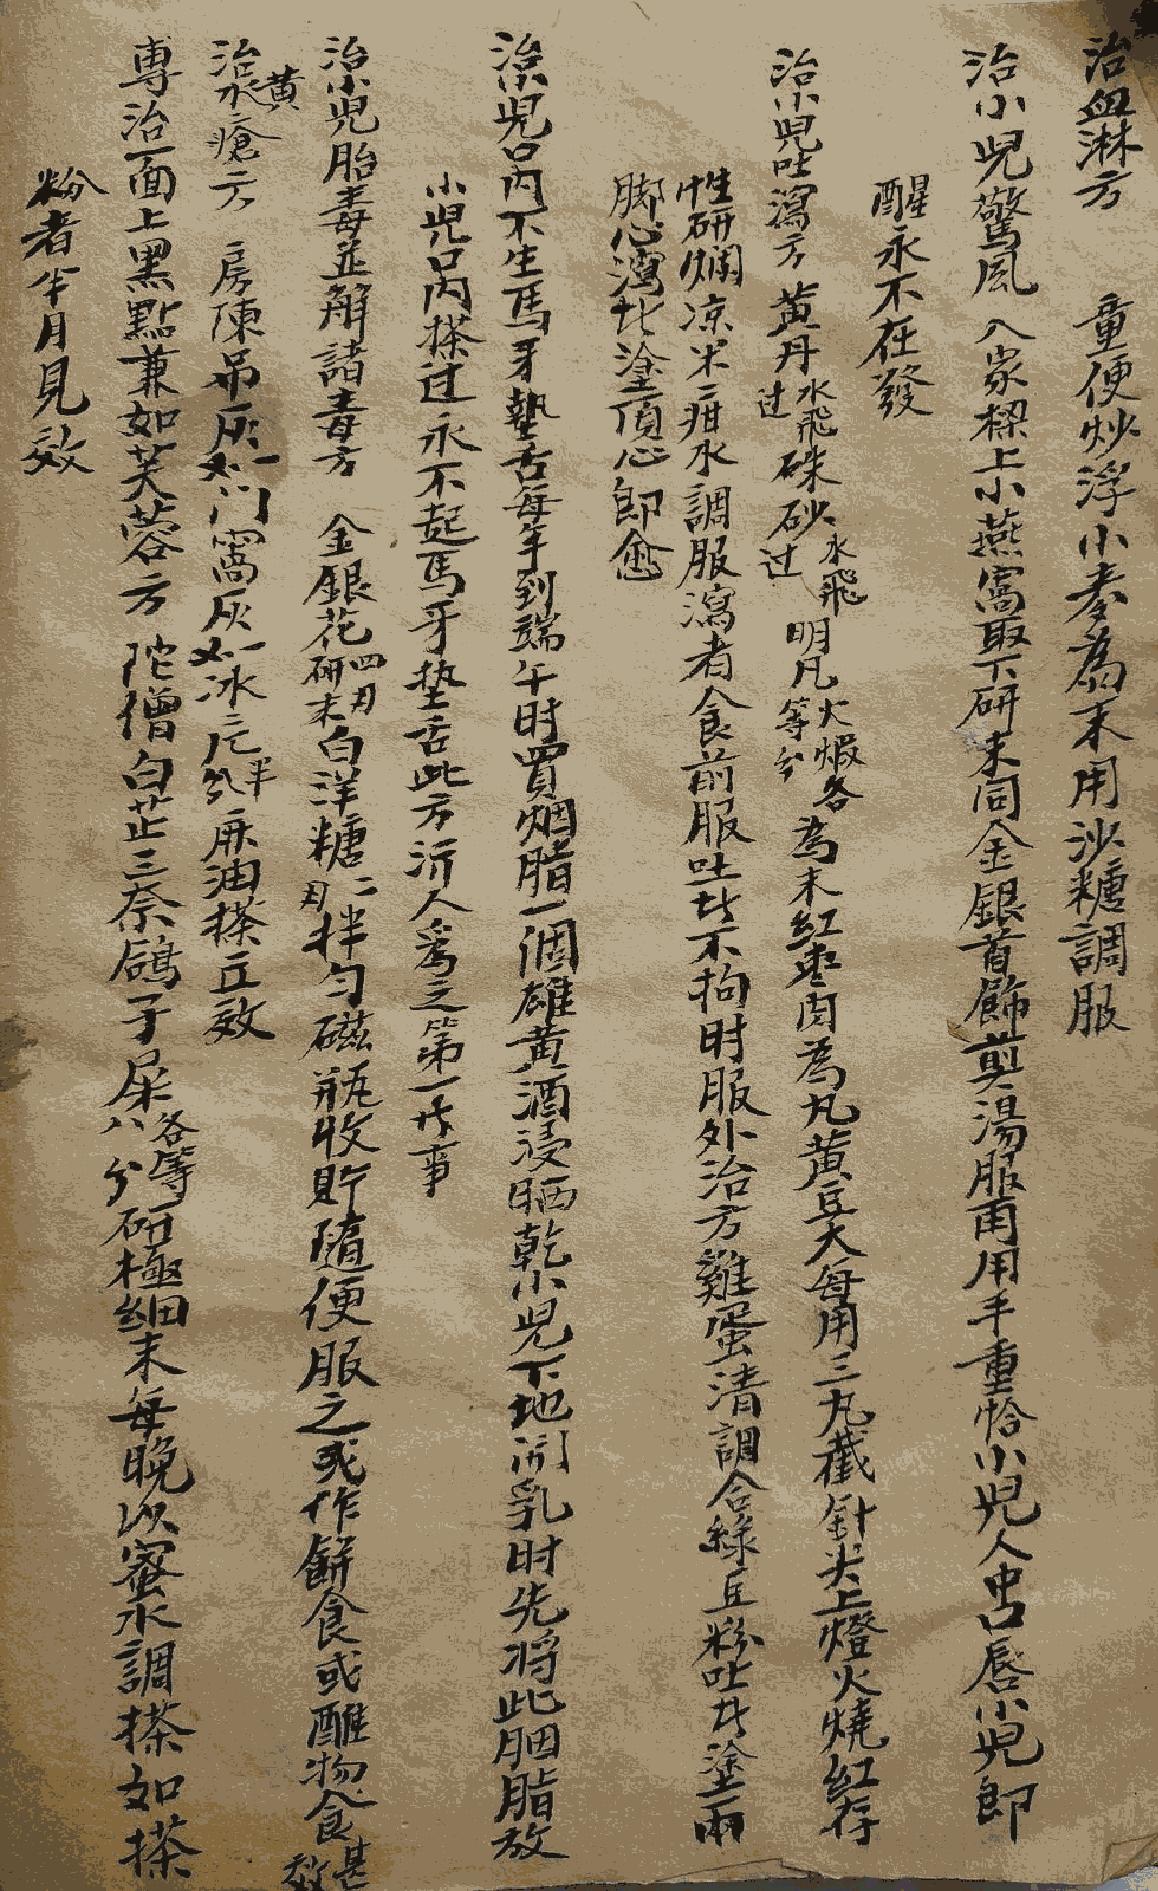 治血淋方　童便炒浮小麥為末用沙糖調服
治小兒驚風　人家樑上小燕窩取下研末同金銀首飾煎湯服再用手重恰小兒人中口唇小兒即
醒永不在發
治小兒吐瀉方　黃丹水飛过硃砂水飛过明凡火煅各等分為末紅枣肉為丸黃豆大每用三丸截針尖上燈火燒紅存
性研爛凉米泔水調服瀉者食前服吐者不拘时服外治方雞蛋清調合綠豆粉吐者塗兩
脚心瀉者塗頂心即愈
治小兒口內不生馬牙墊舌每年到端午时買烟脂一個雄黃酒浸晒乾小兒下地開乳时先將此胭脂放
小兒口內搽过永不起馬牙墊舌此方济人為之第一件事
治小兒胎毒並解諸毒方　金銀花四刄研末白洋糖二刄拌勻磁瓶收貯隨便服之或作餅食或醮物食甚效
治黃水瘡方　房陳吊灰如一門窩灰如一冰元半分麻油搽立效
專治面上黑點兼如芙蓉方　陀僧白芷三奈鴿子屎各等八分研極細末每晚以蜜水調搽如搽
粉者半月見效